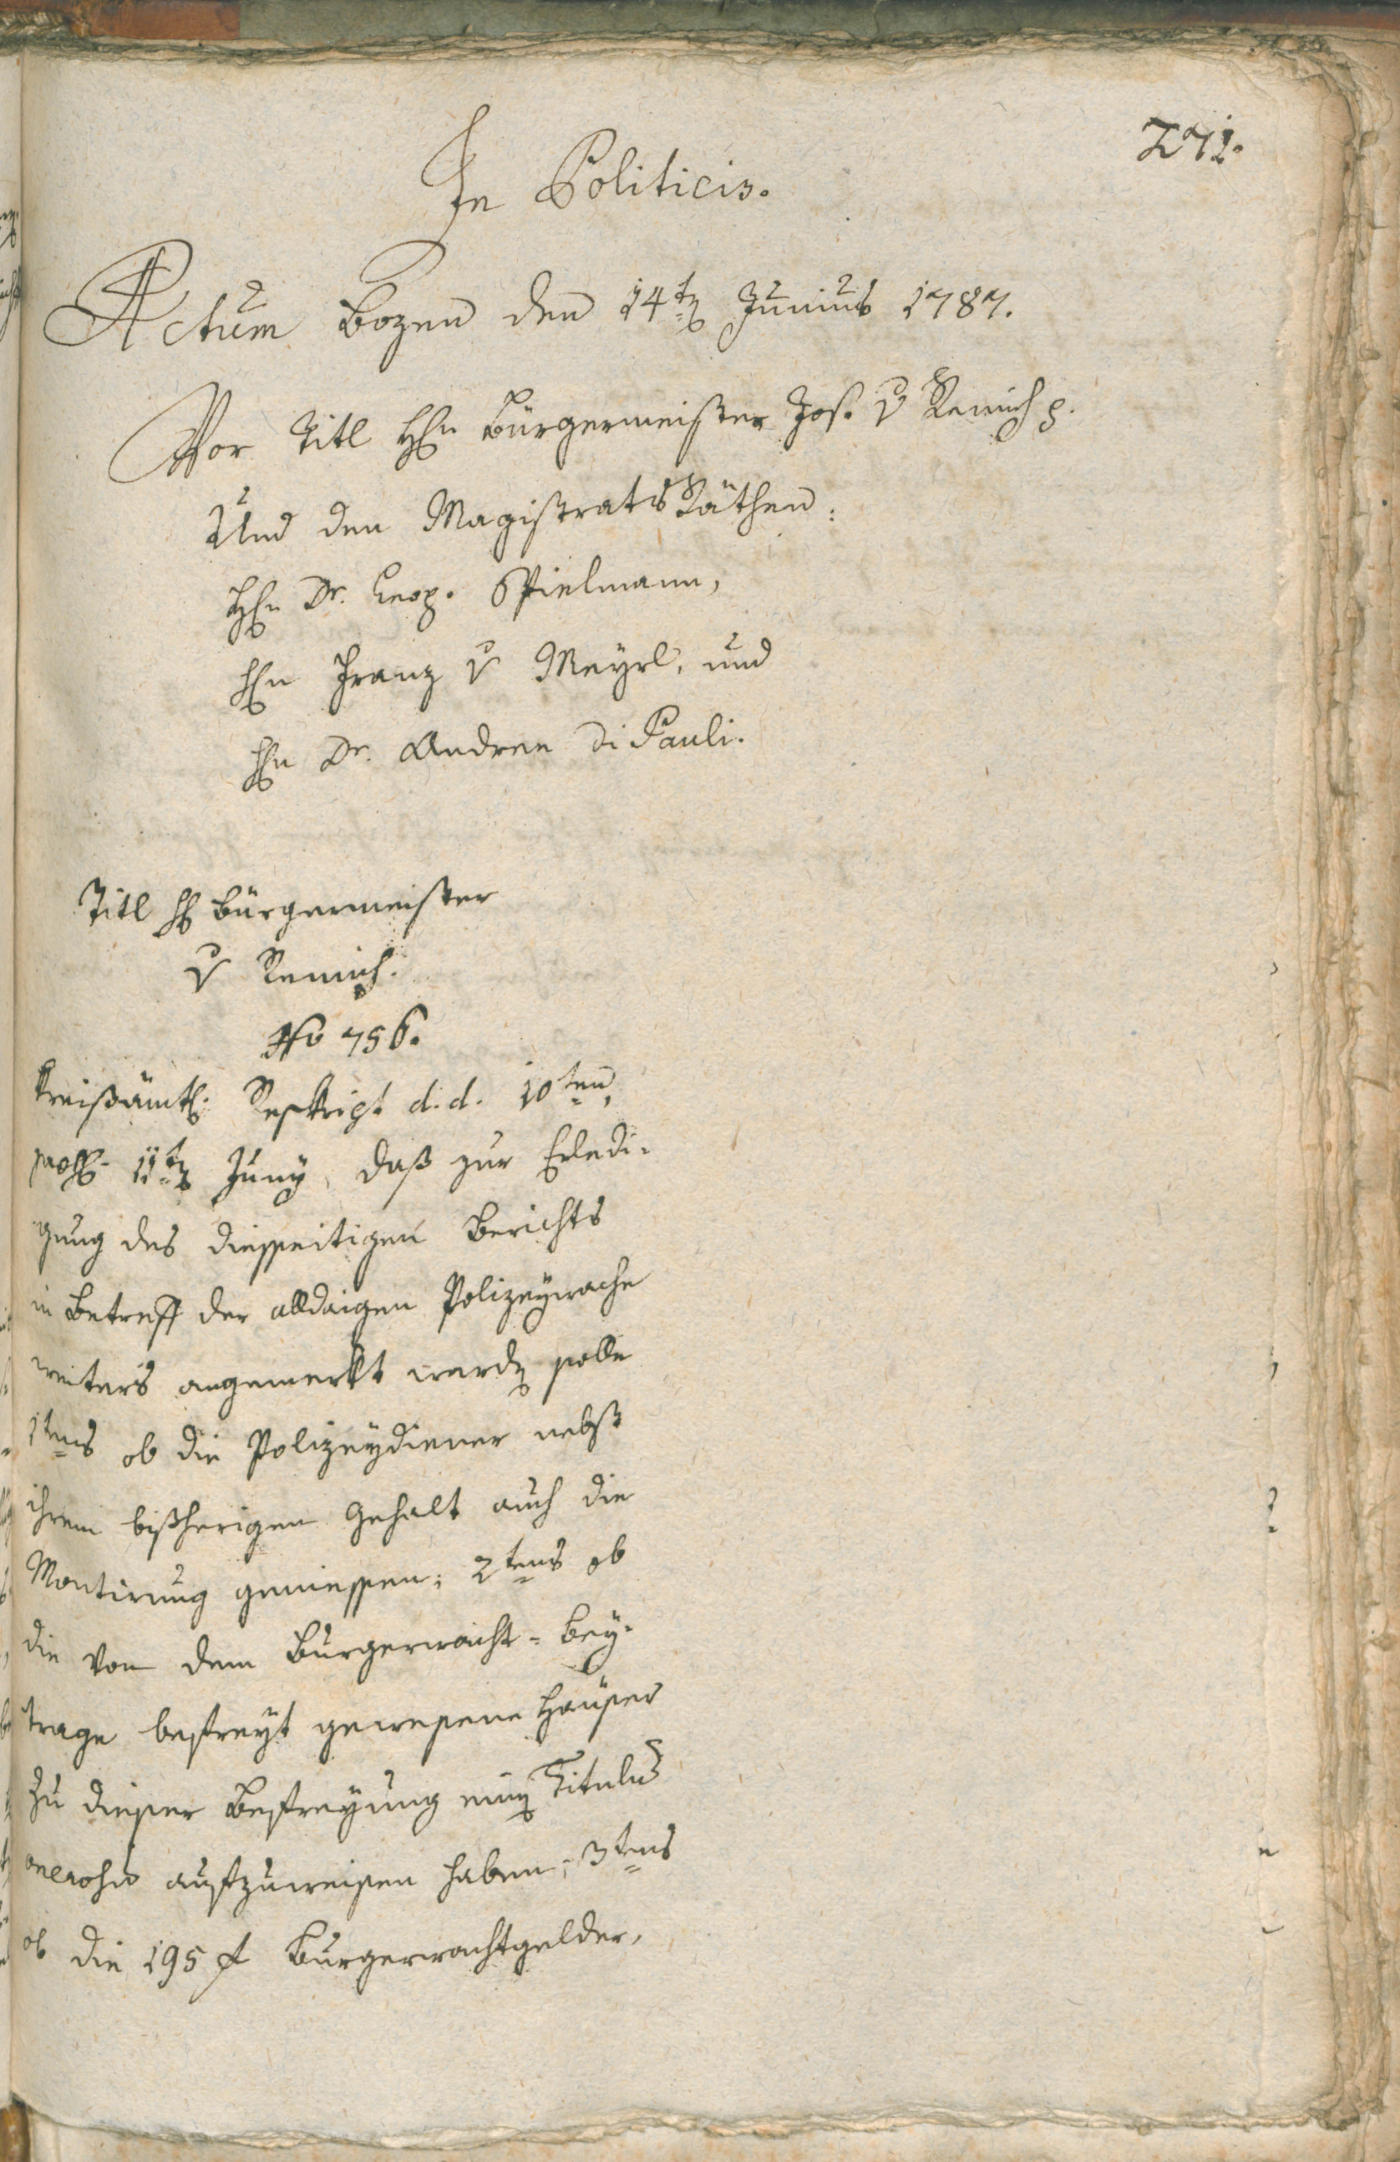 271.
In Politicis.
Actum Bozen den 14t: Junius 1787.
Vor Titl Hn Bürgermeister Jos. v Remich p.
Und den Magistrats Räthen:
Hn Dr. Leop. Spielmann,
Hn Franz v Meyrl, und
Hn Dr. Andree Di Pauli.
Titl H Bürgermeister
v Remich.
No 756.
Kreißämtl: Reskript d. d. 10ten,
11t: Juny, daß zur Erledi-
gung des diesseitigen Berichts
in Betreff der alldaigen Polizeywache
weiters angemerkt werden solle
1tens ob die Polizeydiener nebst
ihrem bißherigen Gehalt auch die
Montirung geniessen; 2tens ob
die von dem Burgerwacht-Bey-
trage befreyt gewesene Häuser
zu dieser Befreyung einen Titulus
aufzuweisen haben; 3tens
ob die 195 f Burgerwachtgelder,